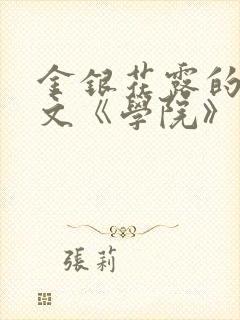 金銀花露的
文《學院》
張莉